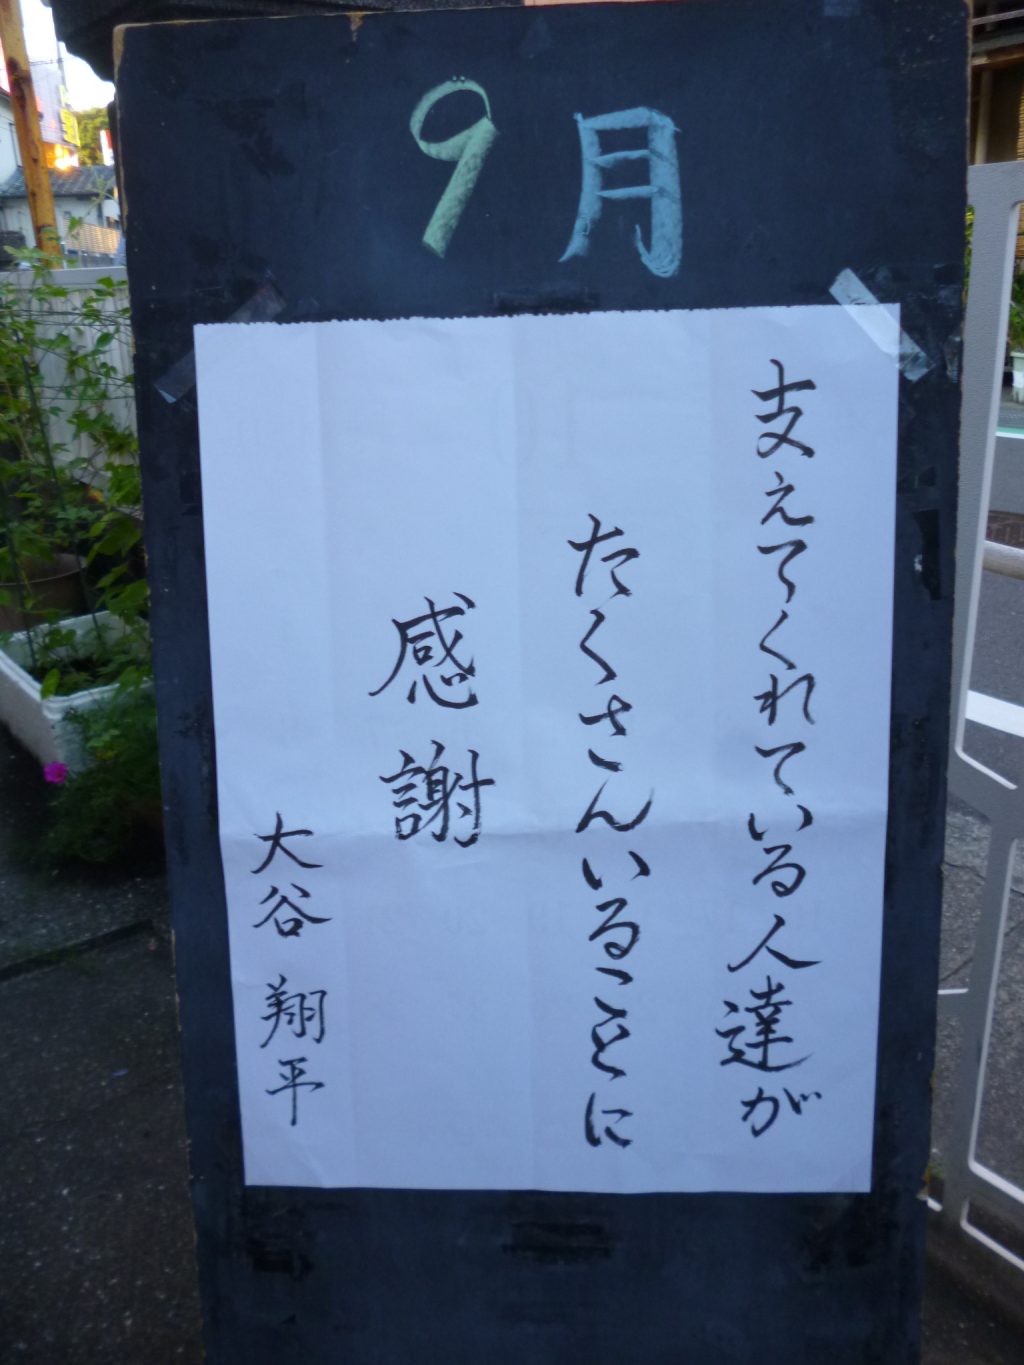 9月
支えてくれている人達が
たくさんいることに
感謝
大谷 翔平